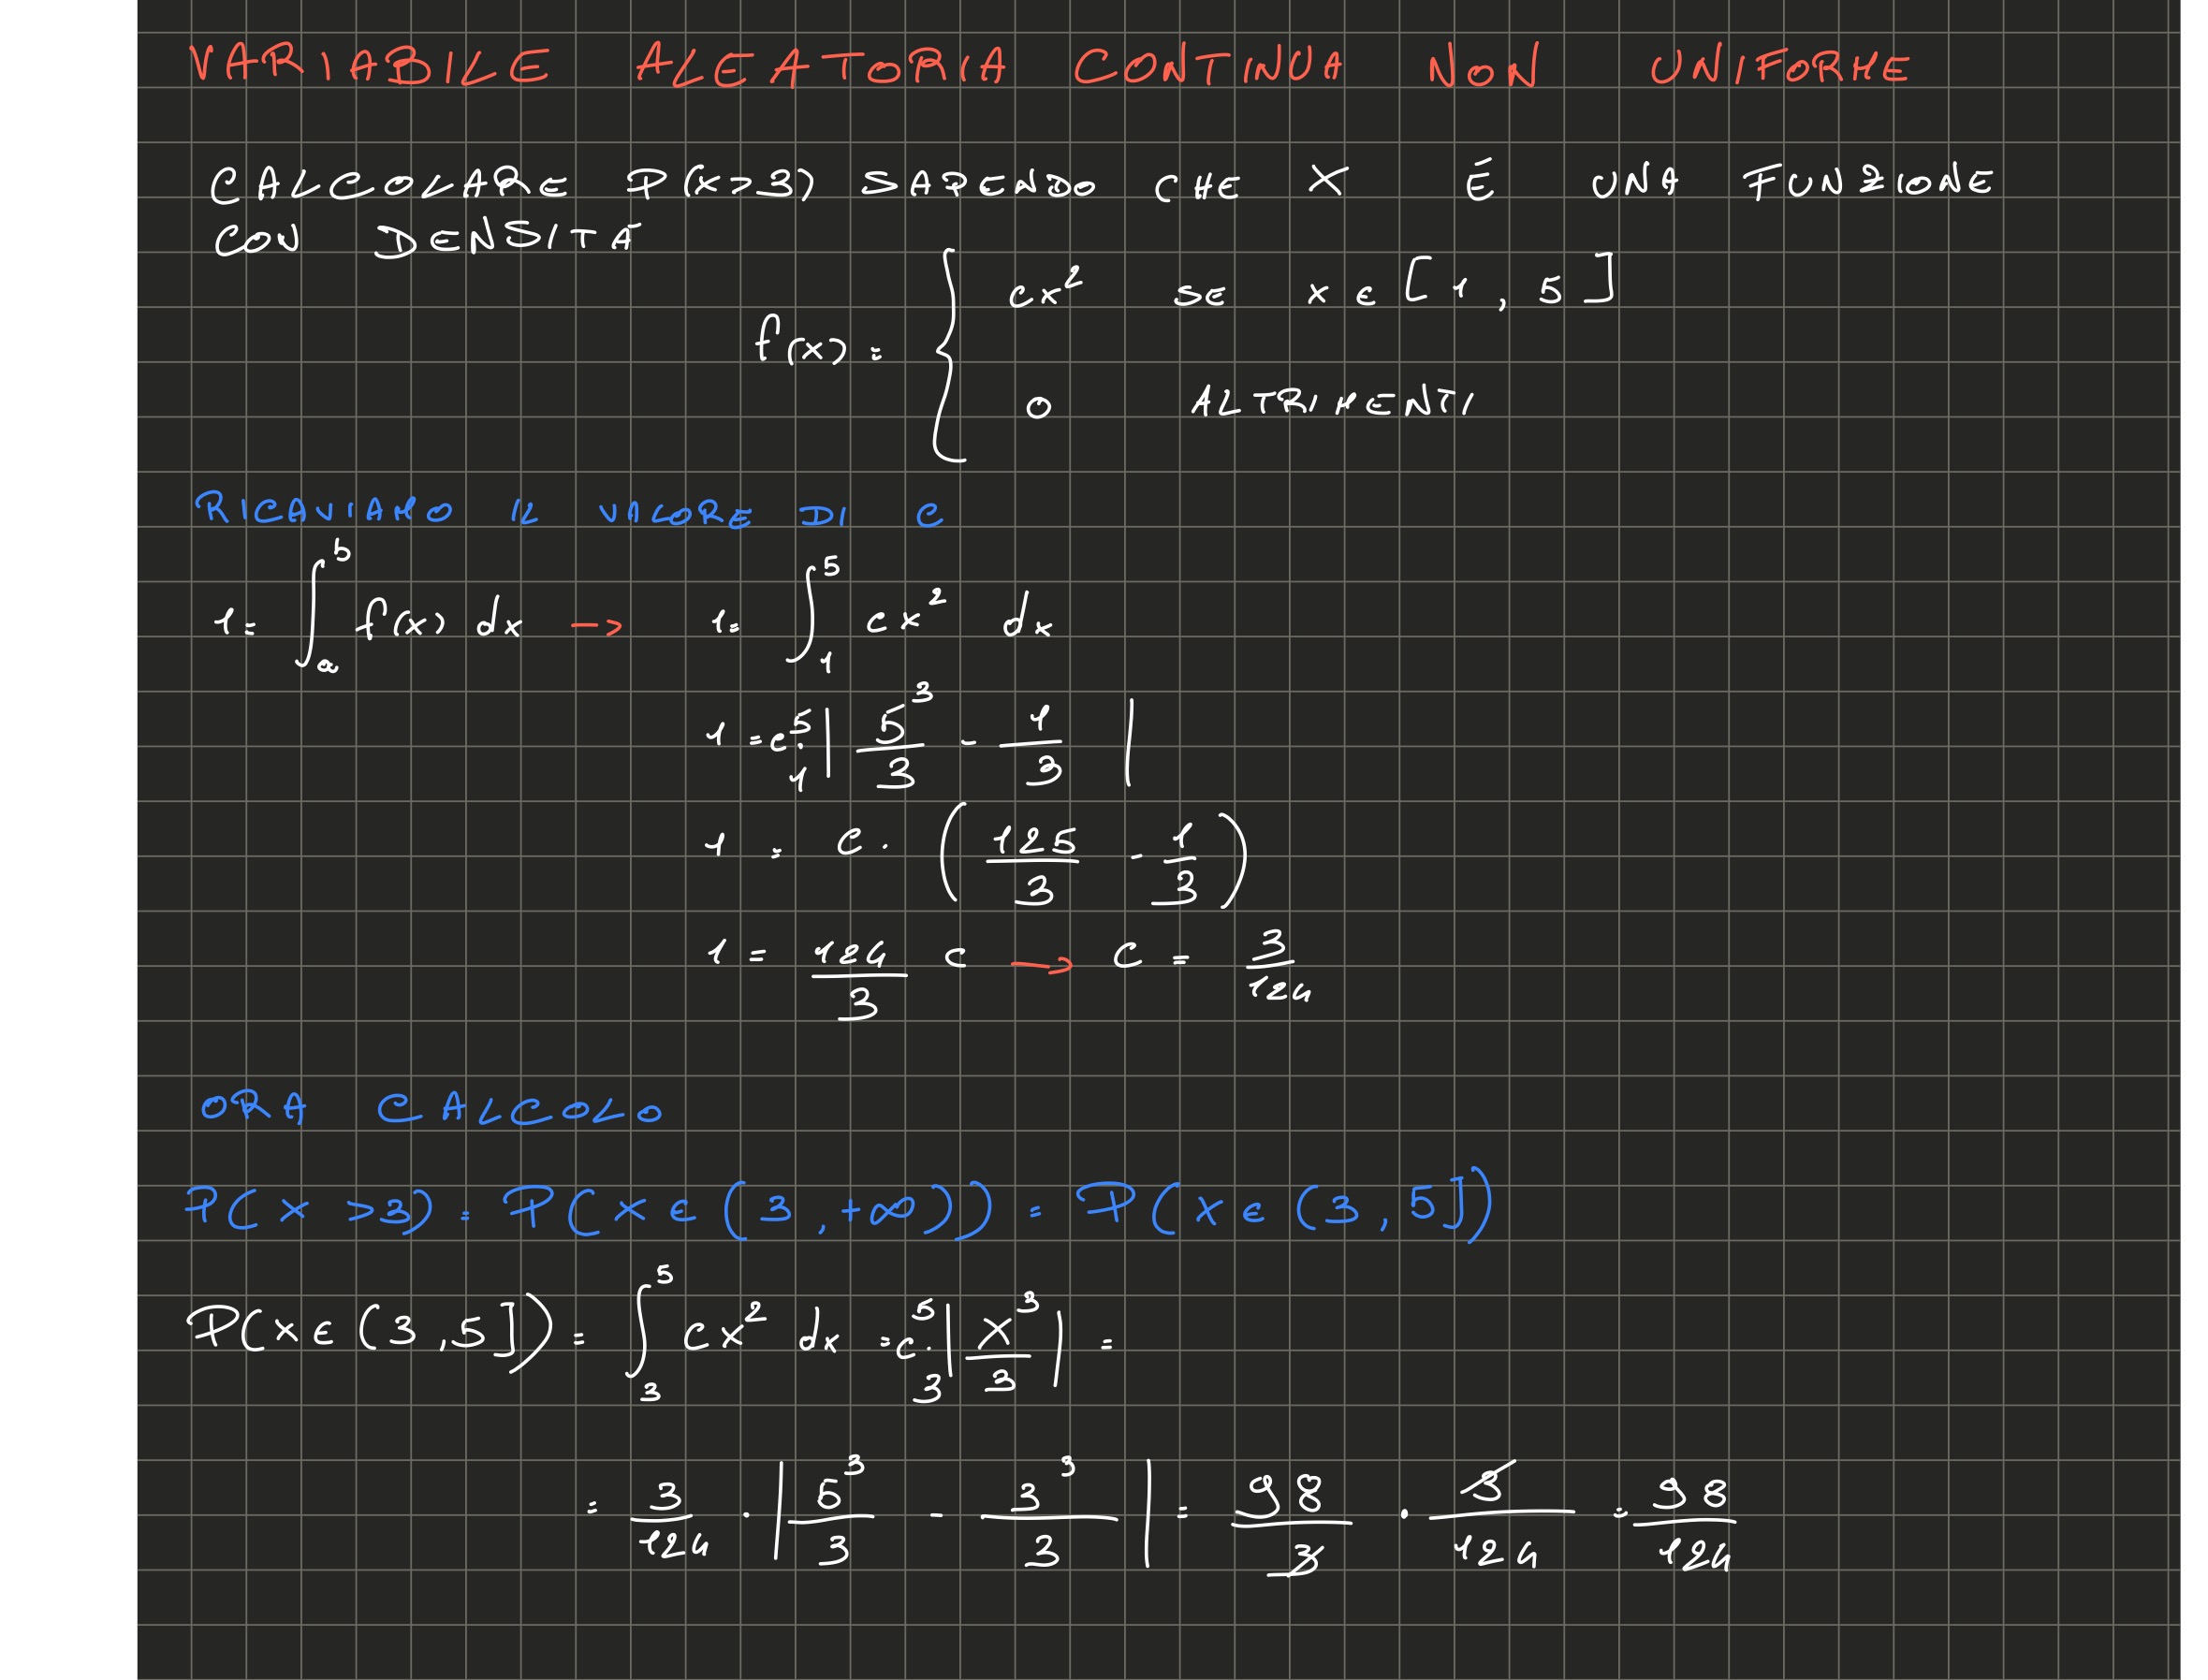 VARIABILE ALEATORIA CONTINUA NON UNIFORME
CALCOLARE P(x>3) SAPENDO CHE X É UNA FUNZIONE
CON DENSITÁ
f(x) = { cx² SE x ∈ [1, 5]
0 ALTRIMENTI
RICAVIAMO IL VALORE DI C
1 = ∫_a^b f(x) dx → 1 = ∫_1^5 cx² dx
1 = c · ⁵₁| 5³/3 - 1/3 |
1 = c · (125/3 - 1/3)
1 = 124/3 c → C = 3/124
ORA CALCOLO
P(x>3) = P(x ∈ (3, +∞)) = P(x ∈ (3, 5])
P(x ∈ (3, 5]) = ∫_3^5 cx² dx = c · ⁵₃| x³/3 | =
= 3/124 · | 5³/3 - 3³/3 | = 98/3 · 3/124 = 98/124